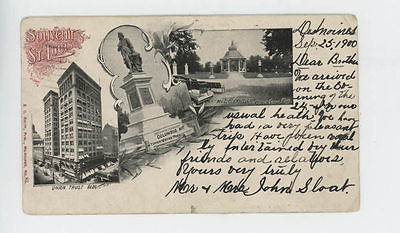 Souvenir
St. Louis
Desmoines
Sep. 25 - 1900
Dear Brother
We arrived
on the Ev
ening of the
24 in our
usual health have
had, a very pleasant
trip. Have been roy
ally entertained by our
friends and relatives
Yours very truly
Mr & Mrs John Sloat.
COLUMBUS
UNION TRUST BLDG.